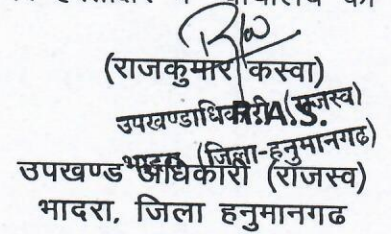 (राजकुमार कस्वा)
उपखण्डाधिकारी (राजस्व)
R.A.S.
भादरा (जिला-हनुमानगढ)
उपखण्ड अधिकारी (राजस्व)
भादरा, जिला हनुमानगढ